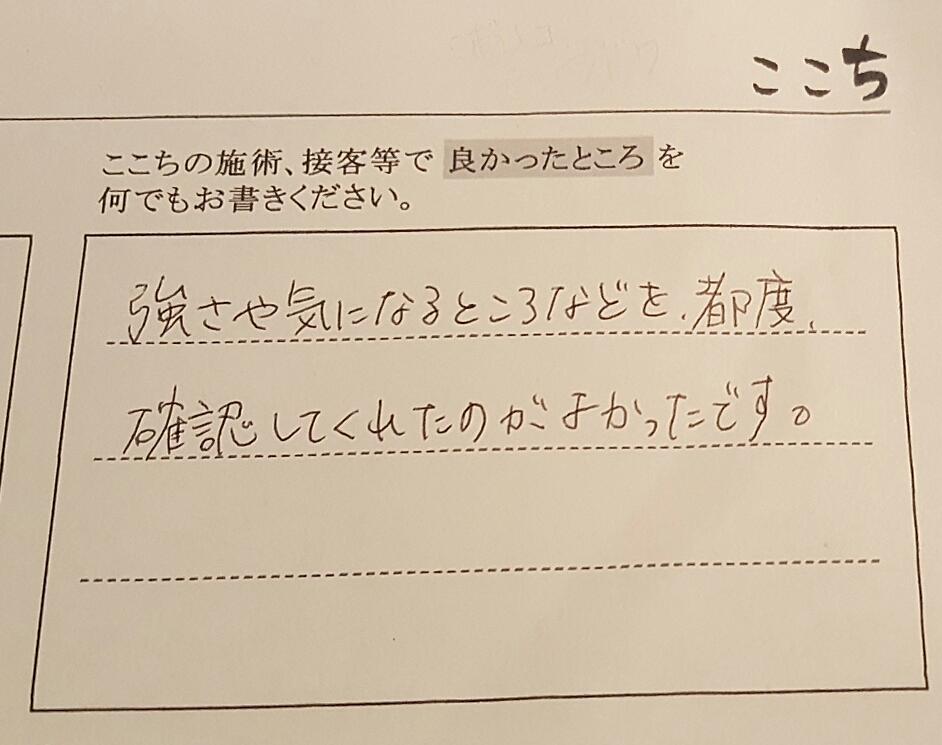 ここち
ここちの施術、接客等で 良かったところ を
何でもお書きください。
強さや気になるところなどを、都度、
確認してくれたのがよかったです。